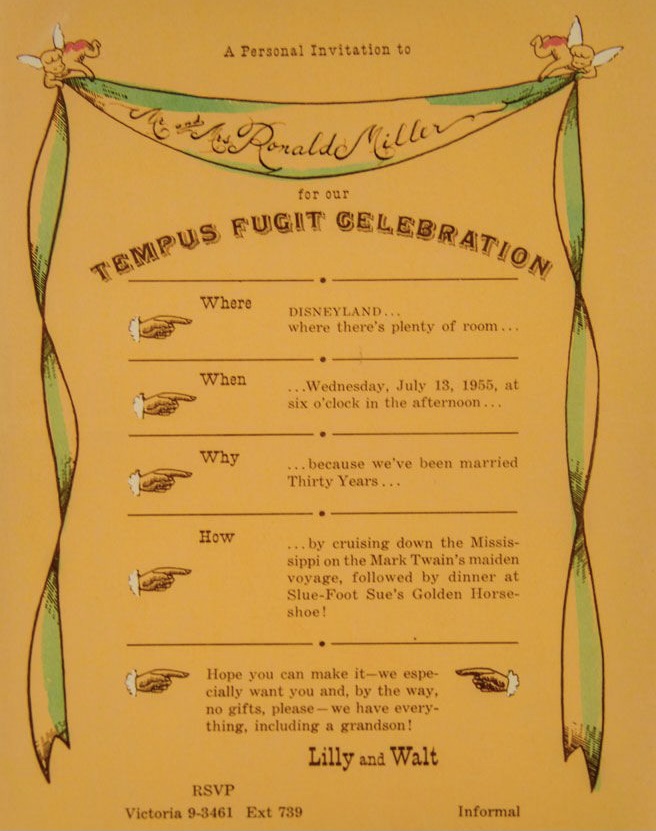 A Personal Invitation to
Mr and Mrs Ronald Miller
for our
TEMPUS FUGIT CELEBRATION
Where
DISNEYLAND...
where there's plenty of room...
When
...Wednesday, July 13, 1955, at
six o'clock in the afternoon...
Why
...because we've been married
Thirty Years...
How
...by cruising down the Missis-
sippi on the Mark Twain's maiden
voyage, followed by dinner at
Slue-Foot Sue's Golden Horse-
shoe!
Hope you can make it—we espe-
cially want you and, by the way,
no gifts, please—we have every-
thing, including a grandson!
Lilly and Walt
RSVP
Victoria 9-3461 Ext 739
Informal